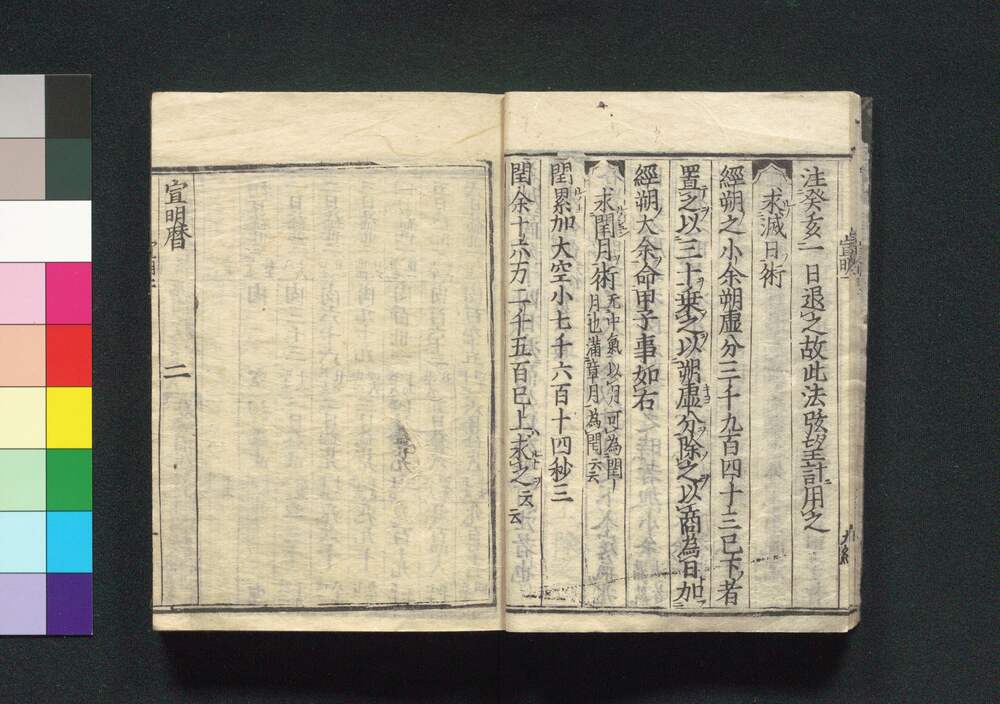 注癸亥一日退之故此法弦望計用之
求滅日術
經朔之小余朔虚分三千九百四十三已下者
置之以三十乗之以朔虚分除之以商為日加
經朔大余命甲子事如右
求閏月術 无中氣以月可為閏
月也滿章月為閏云云
閏累加大空小七千六百十四秒三
閏余十六万二千五百已上求之云云
宣明暦
二